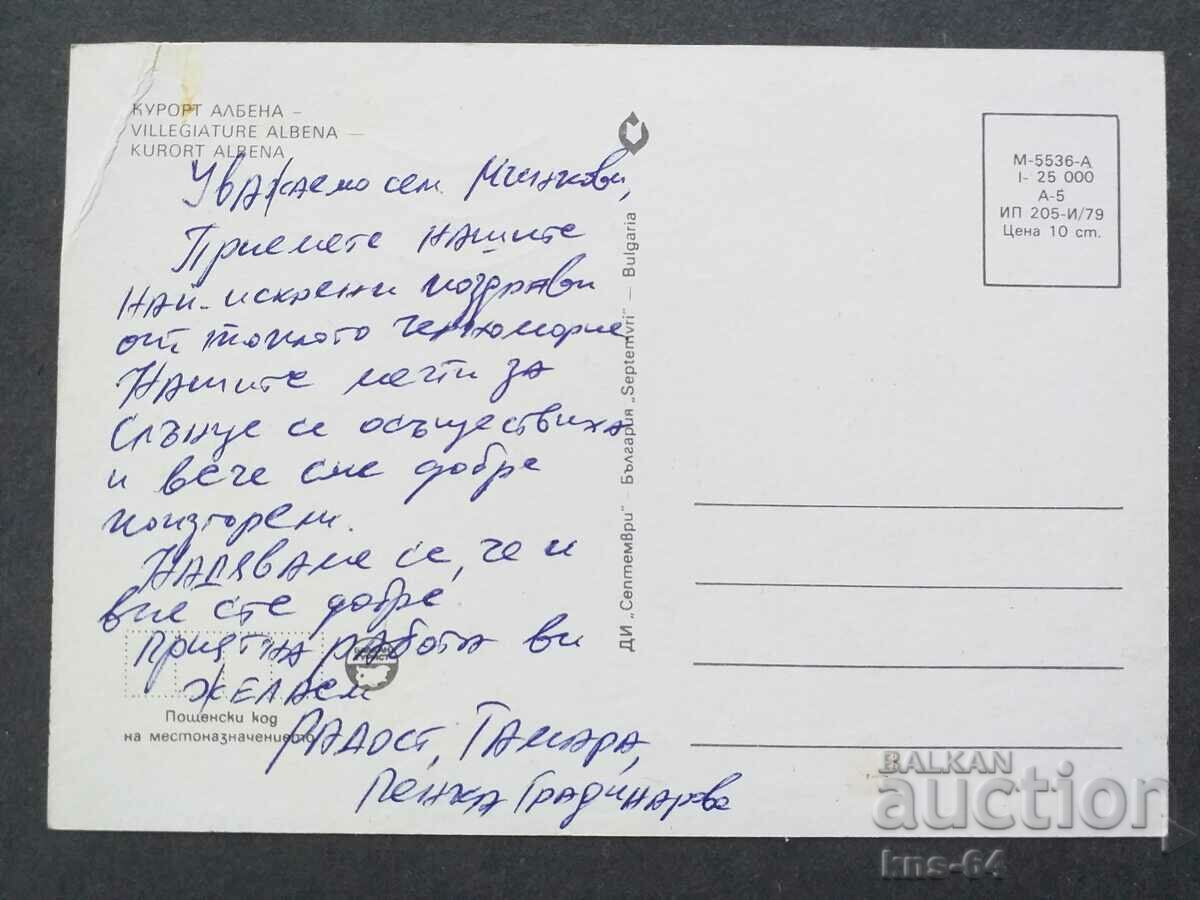 КУРОРТ АЛБЕНА –
VILLEGIATURE ALBENA —
KURORT ALBENA
Уважаемо сем. Мчинкови,
Приемете нашите
най-искрени поздрави
от топлото Черноморие
Нашите мечти за
слънце се осъществиха
и вече сме добре
поизгорени.
Надяваме се, че и
вие сте добре
приятна работа ви
желаем
Радост, Тамара,
Пенка Градинарова
Пощенски код
на местоназначението
ДИ „Септември" – България „Septemvri" — Bulgaria
М-5536-А
I- 25 000
А-5
ИП 205-И/79
Цена 10 ст.
BALKAN
auction
kns-64